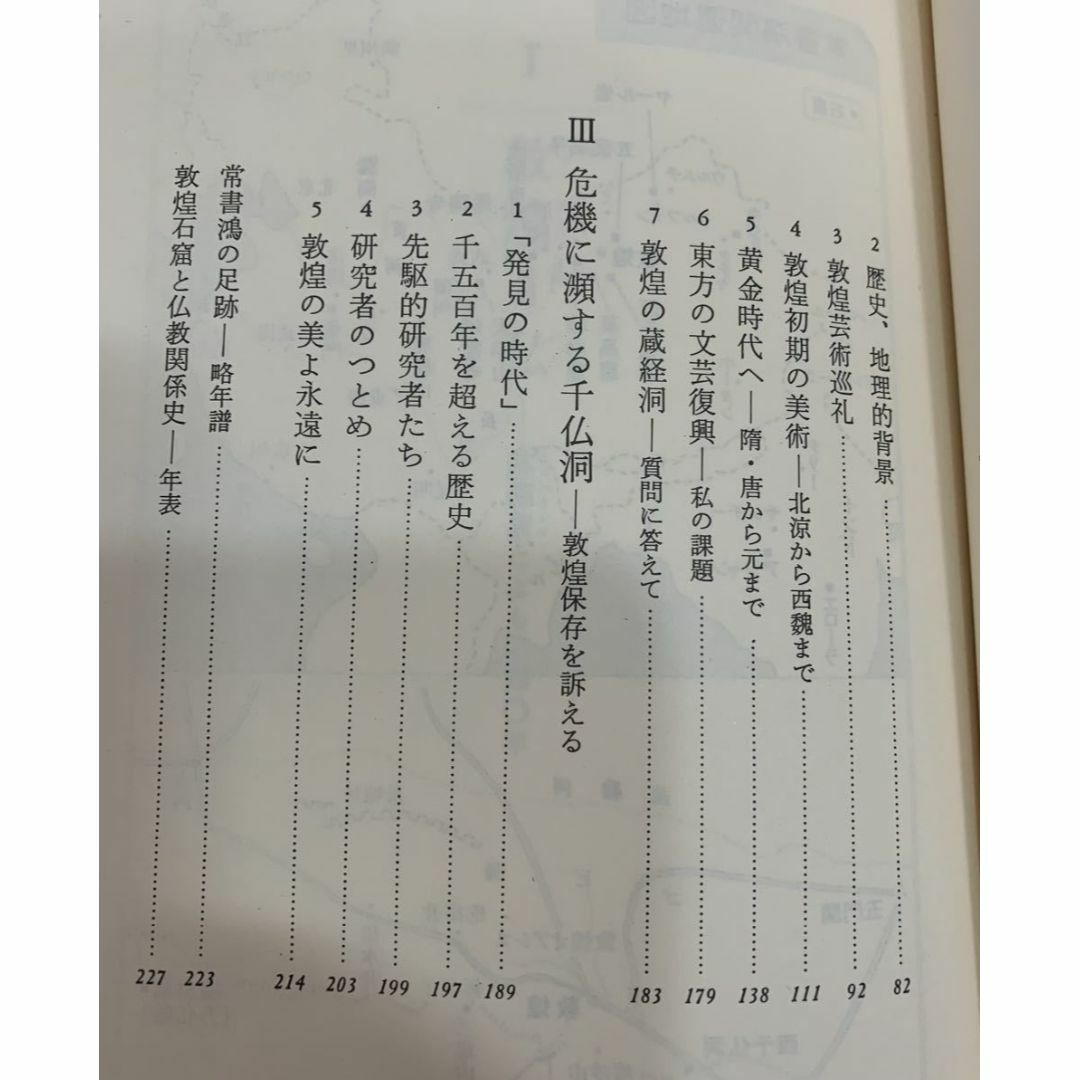 2 歴史、地理的背景……82
3 敦煌芸術巡礼……92
4 敦煌初期の美術―北涼から西魏まで……111
5 黄金時代へ―隋・唐から元まで……138
6 東方の文芸復興―私の課題……179
7 敦煌の蔵経洞―質問に答えて……183
Ⅲ 危機に瀕する千仏洞―敦煌保存を訴える
1 「発見の時代」……189
2 千五百年を超える歴史……197
3 先駆的研究者たち……199
4 研究者のつとめ……203
5 敦煌の美よ永遠に……214
常書鴻の足跡―略年譜……223
敦煌石窟と仏教関係史―年表……227